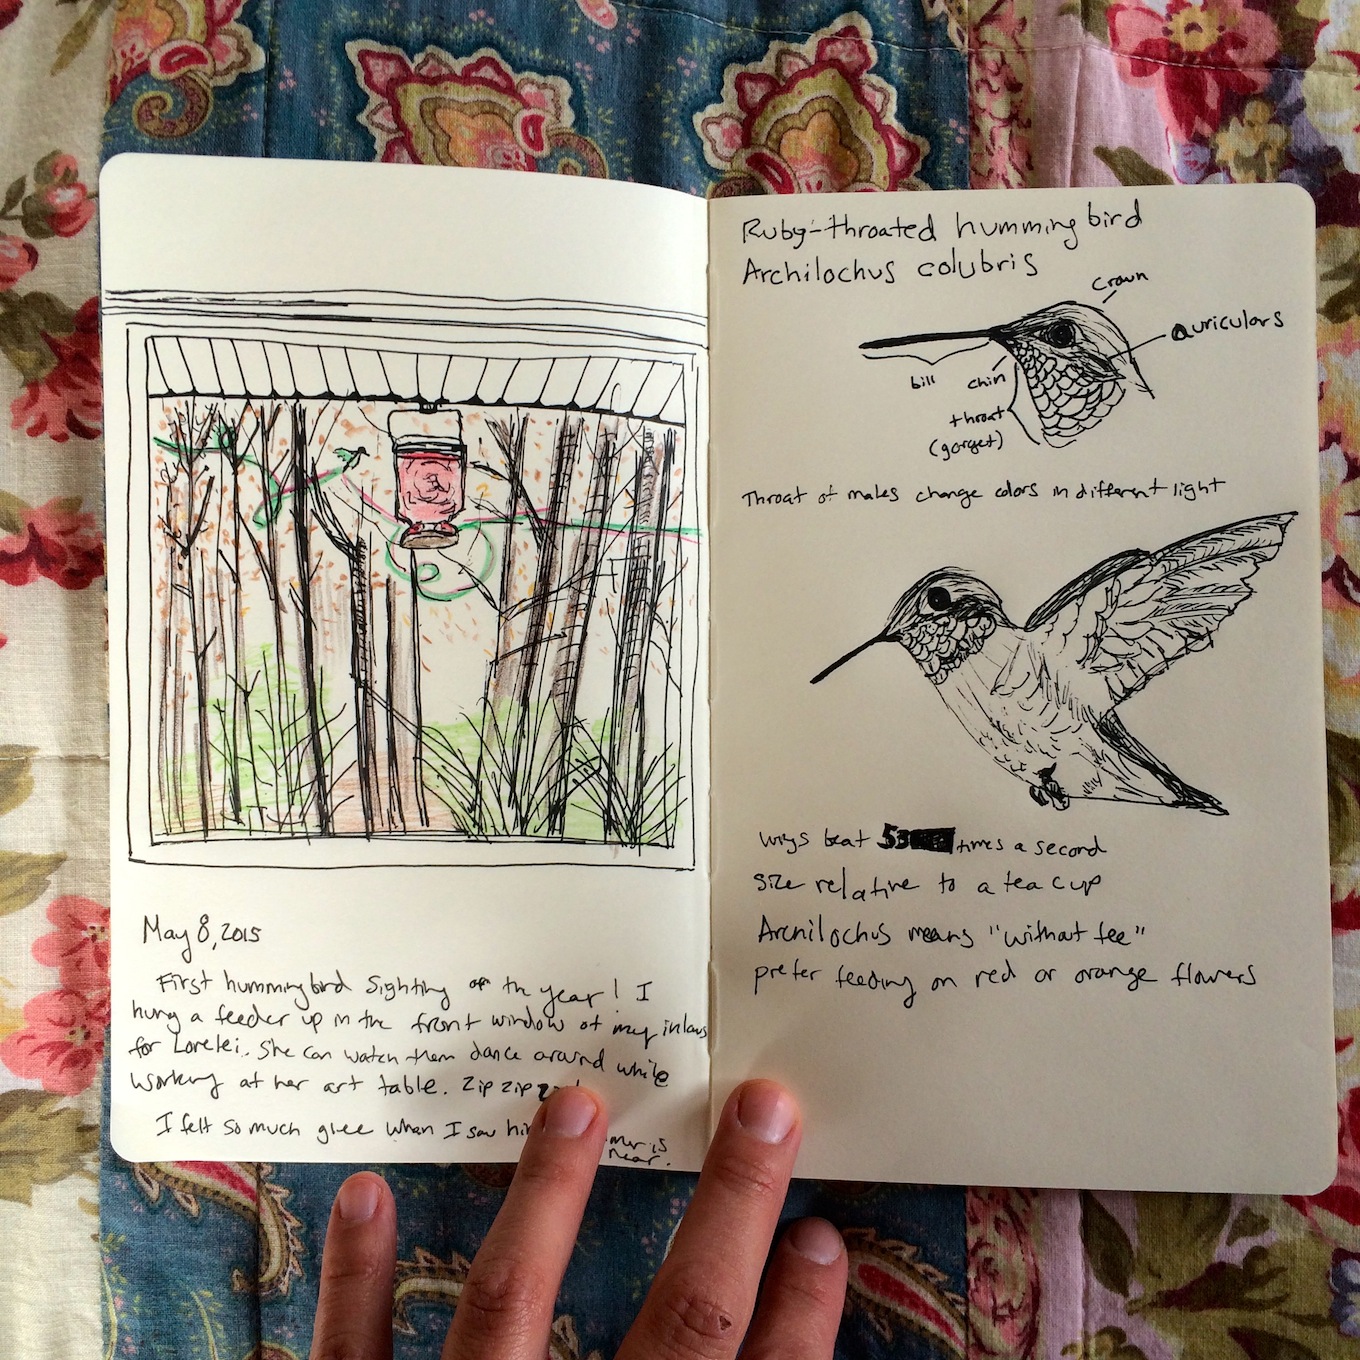 May 8, 2015
First hummingbird sighting of the year! I
hung a feeder up in the front window of my inlaws
for Lorelei. She can watch them dance around while
working at her art table. Zip zip
I felt so much glee when I saw
is
near.
Ruby-throated hummingbird
Archilochus colubris
crown
auriculars
bill
chin
throat
(gorget)
Throat of males change colors in different light
wings beat 53 times a second
size relative to a tea cup
Archilochus means "without fee"
prefer feeding on red or orange flowers